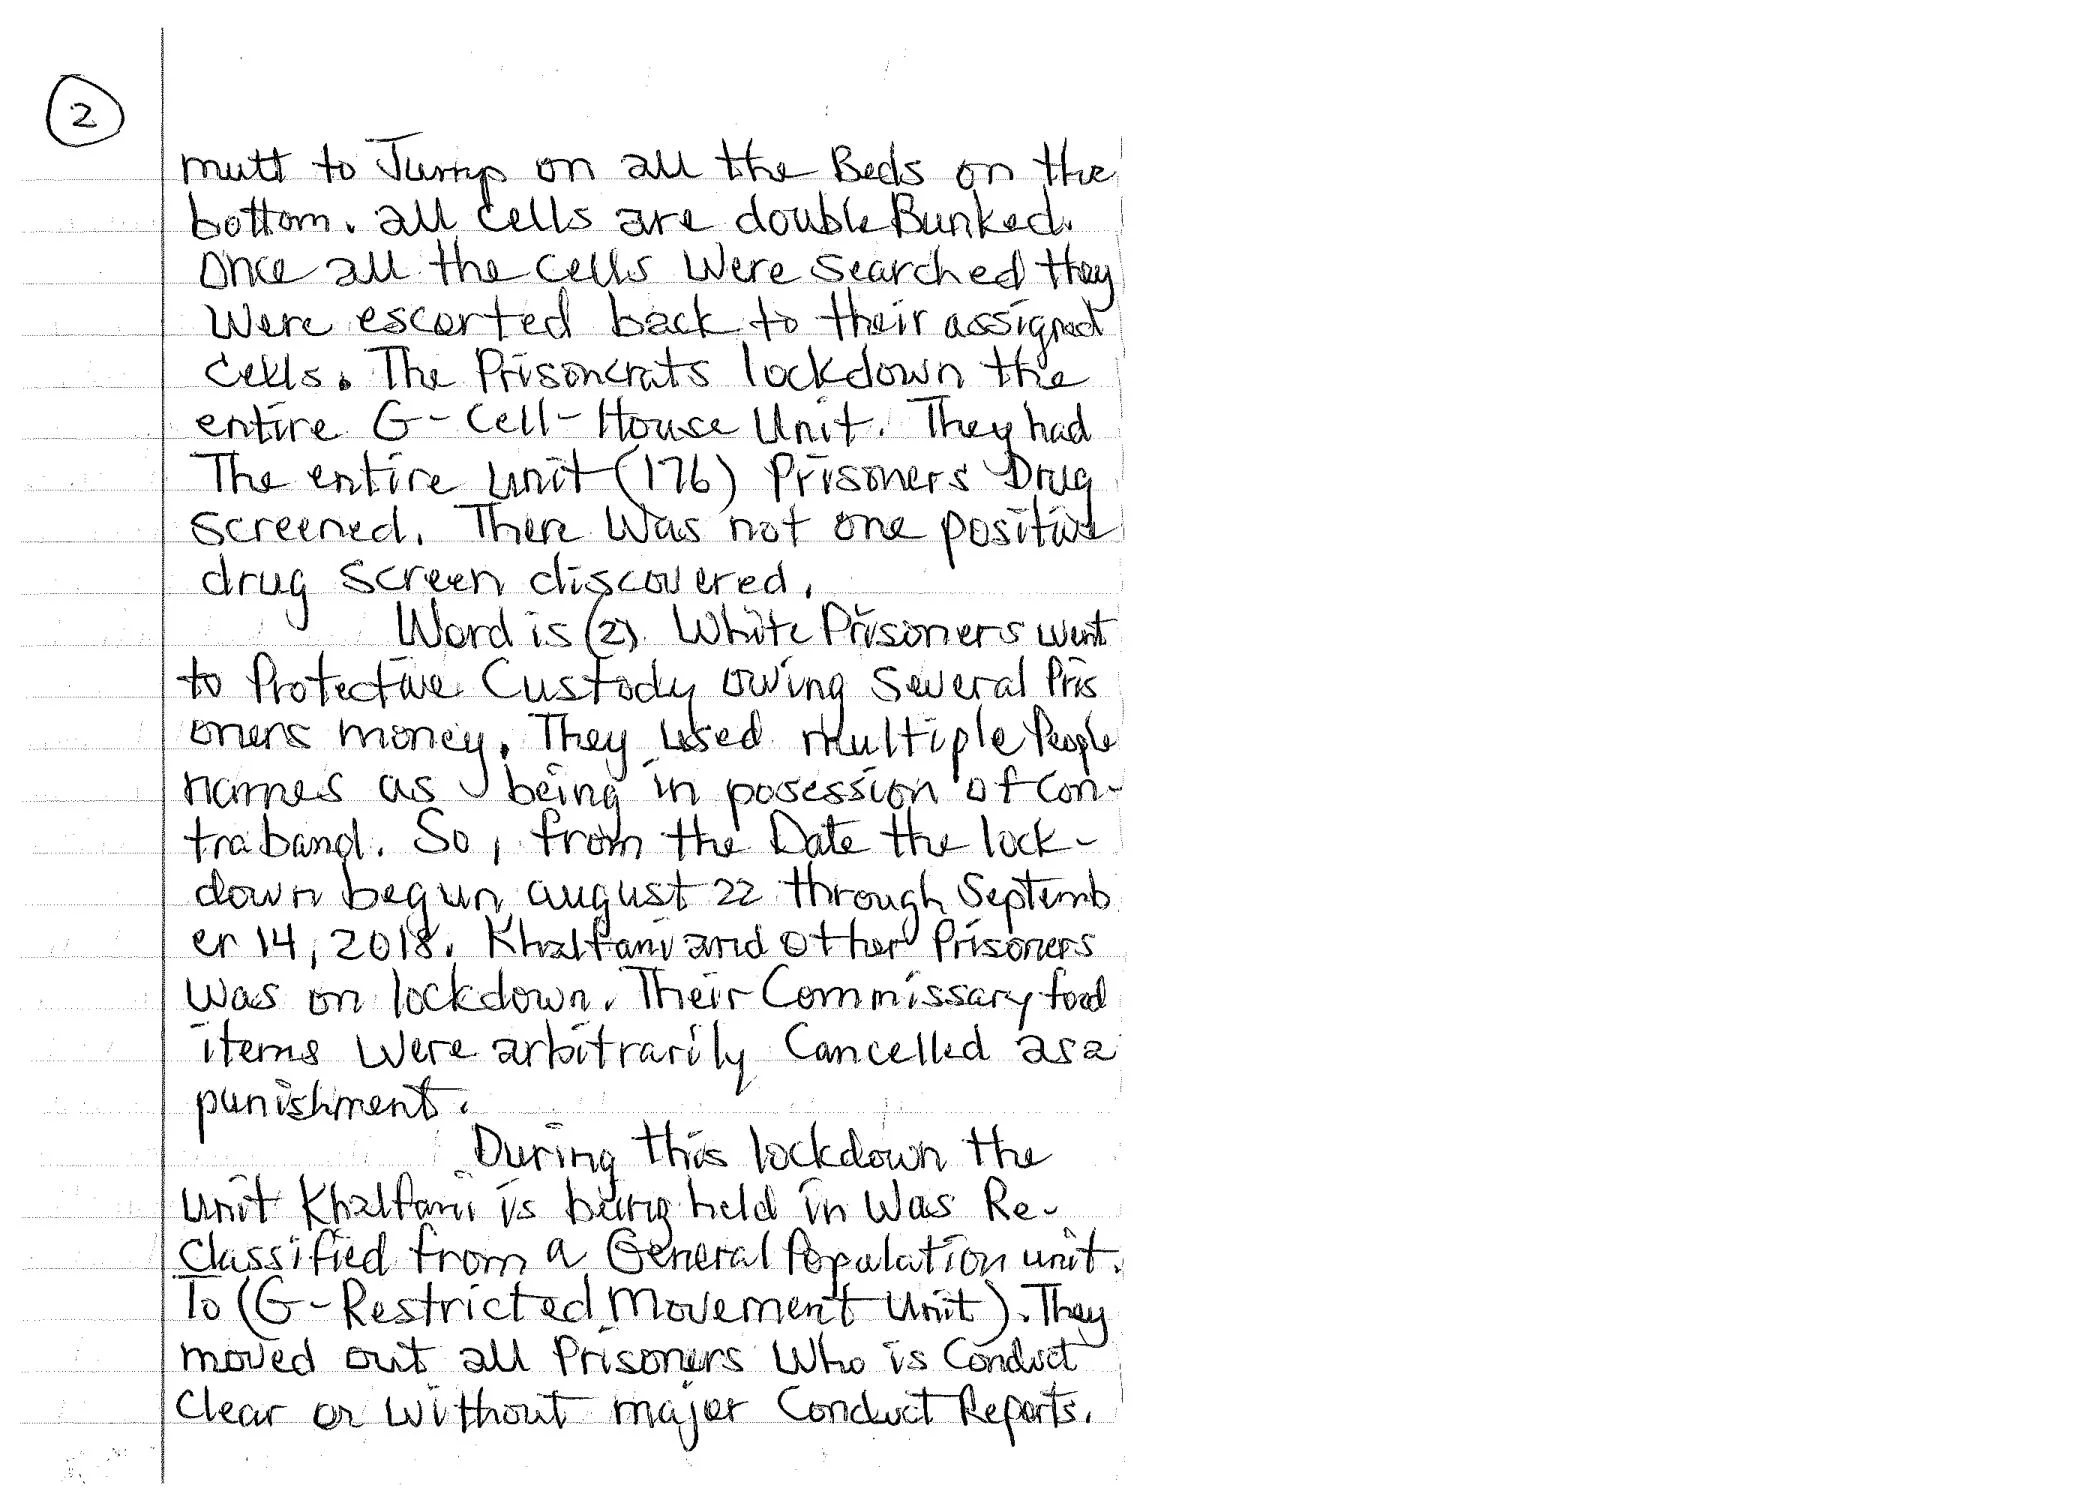 2
mutt to Jump on all the Beds on the
bottom. all cells are double Bunked.
Once all the cells Were Searched they
Were escorted back to their assigned
Cells. The Prisoncrats lockdown the
entire G-Cell-House Unit. They had
The entire unit (176) Prisoners Drug
Screened. There Was not one positive
drug Screen discovered.
Word is (2) White Prisoners went
to Protective Custody owing Several Pris
oners money. They used Multiple People
names as being in posession of Con-
traband. So, from the Date the lock-
down begun august 22 through Septemb
er 14, 2018. Khalfani and other Prisoners
Was on lockdown. Their Commissary food
items Were arbitrarily Cancelled as a
punishment.
During this lockdown the
Unit Khalfani is being held in Was Re-
Classified from a General Population unit.
To (G-Restricted Movement Unit). They
moved out all Prisoners Who is Conduct
Clear or Without major Conduct Reports.